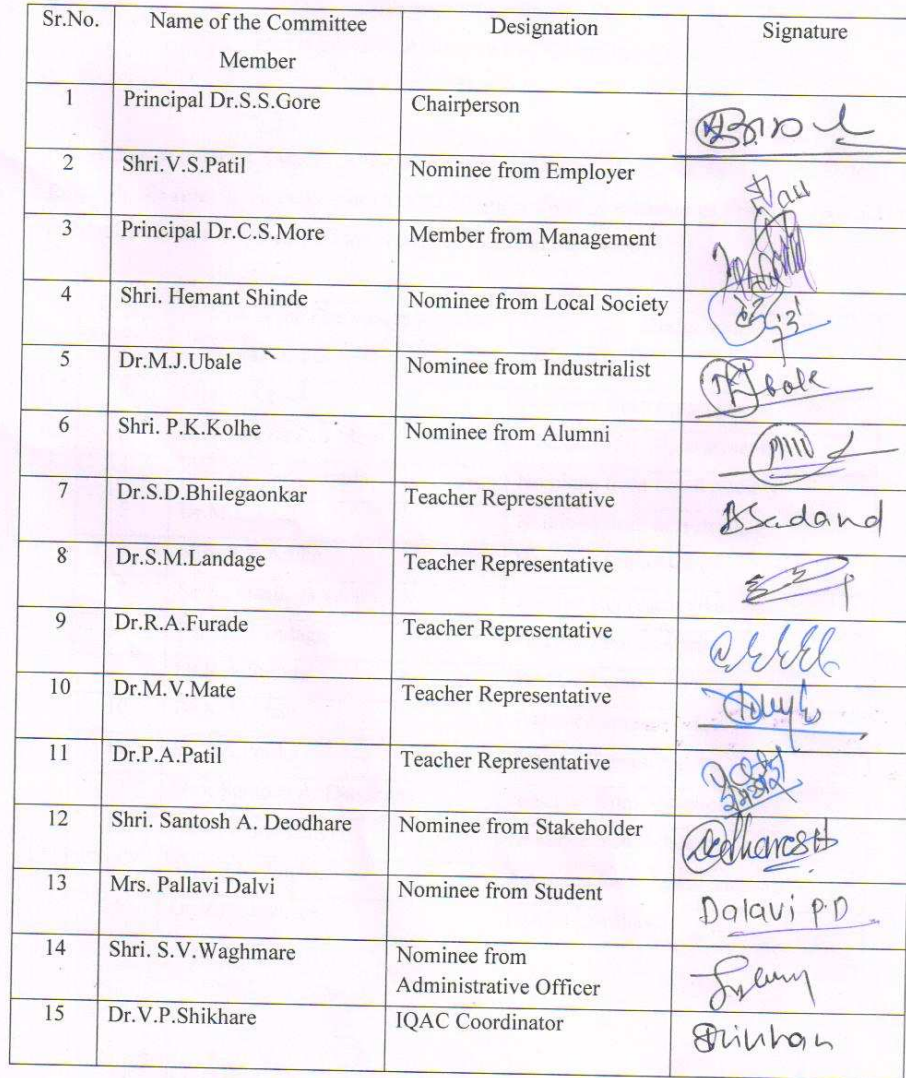 Sr.No. Name of the Committee Member Designation Signature
1 Principal Dr.S.S.Gore Chairperson
2 Shri.V.S.Patil Nominee from Employer
3 Principal Dr.C.S.More Member from Management
4 Shri. Hemant Shinde Nominee from Local Society
5 Dr.M.J.Ubale Nominee from Industrialist
6 Shri. P.K.Kolhe Nominee from Alumni
7 Dr.S.D.Bhilegaonkar Teacher Representative
8 Dr.S.M.Landage Teacher Representative
9 Dr.R.A.Furade Teacher Representative
10 Dr.M.V.Mate Teacher Representative
11 Dr.P.A.Patil Teacher Representative
12 Shri. Santosh A. Deodhare Nominee from Stakeholder
13 Mrs. Pallavi Dalvi Nominee from Student Dalavi P.D
14 Shri. S.V.Waghmare Nominee from
Administrative Officer
15 Dr.V.P.Shikhare IQAC Coordinator